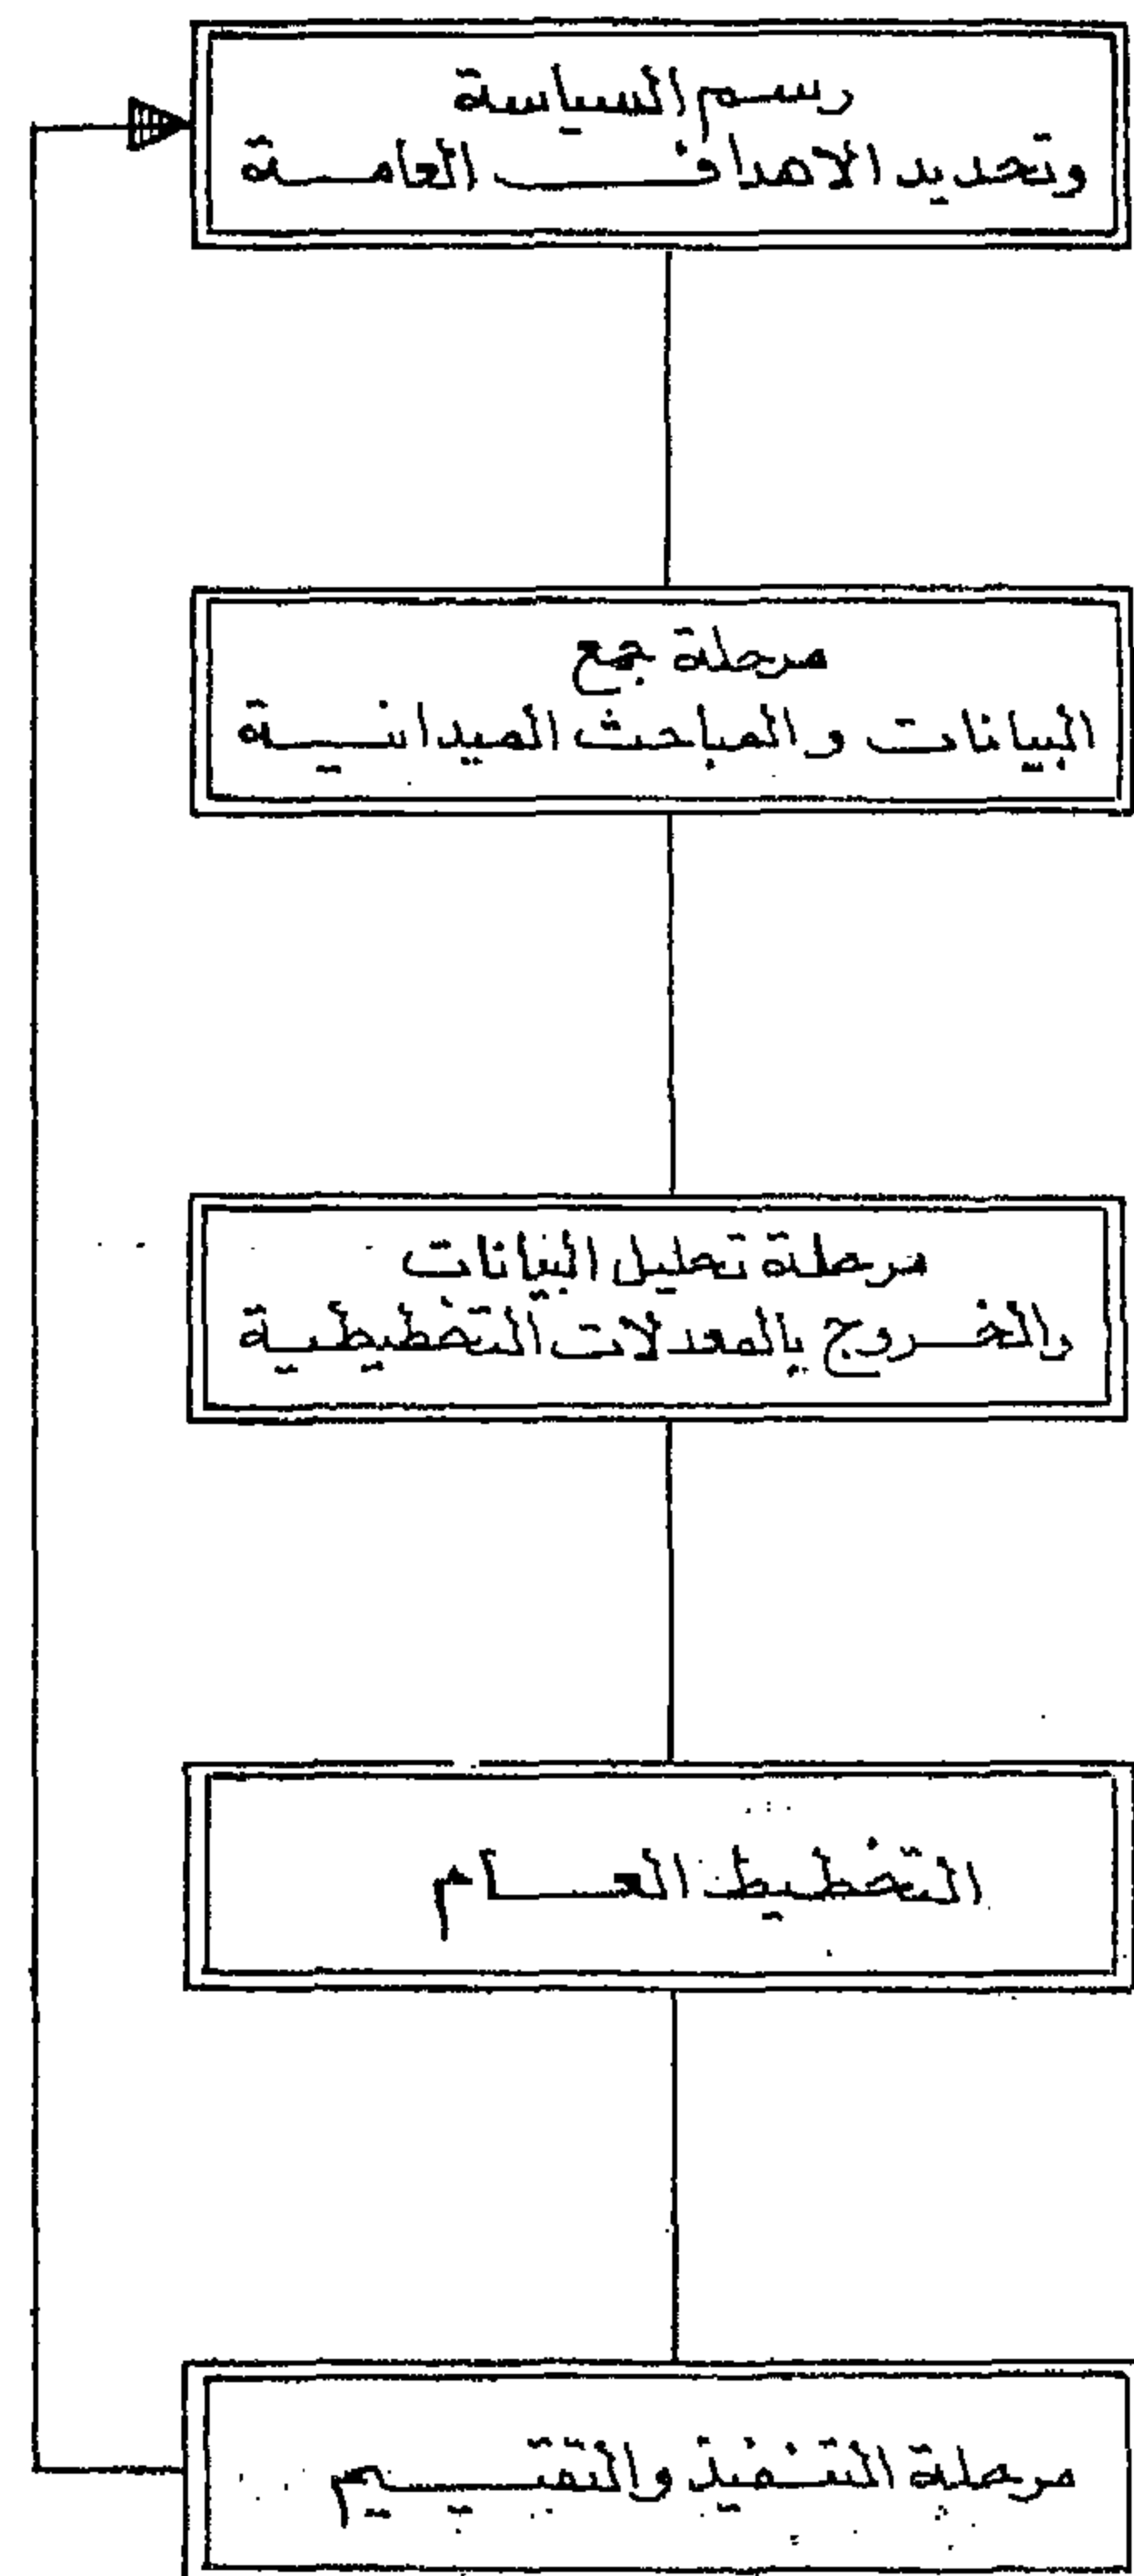 رسم السياسة
وتحديد الاهداف العامة
مرحلة جمع
البيانات والمباحث الميدانية
مرحلة تحليل البيانات
والخروج بالمعدلات التخطيطية
التخطيط العام
مرحلة التنفيذ والتقييم